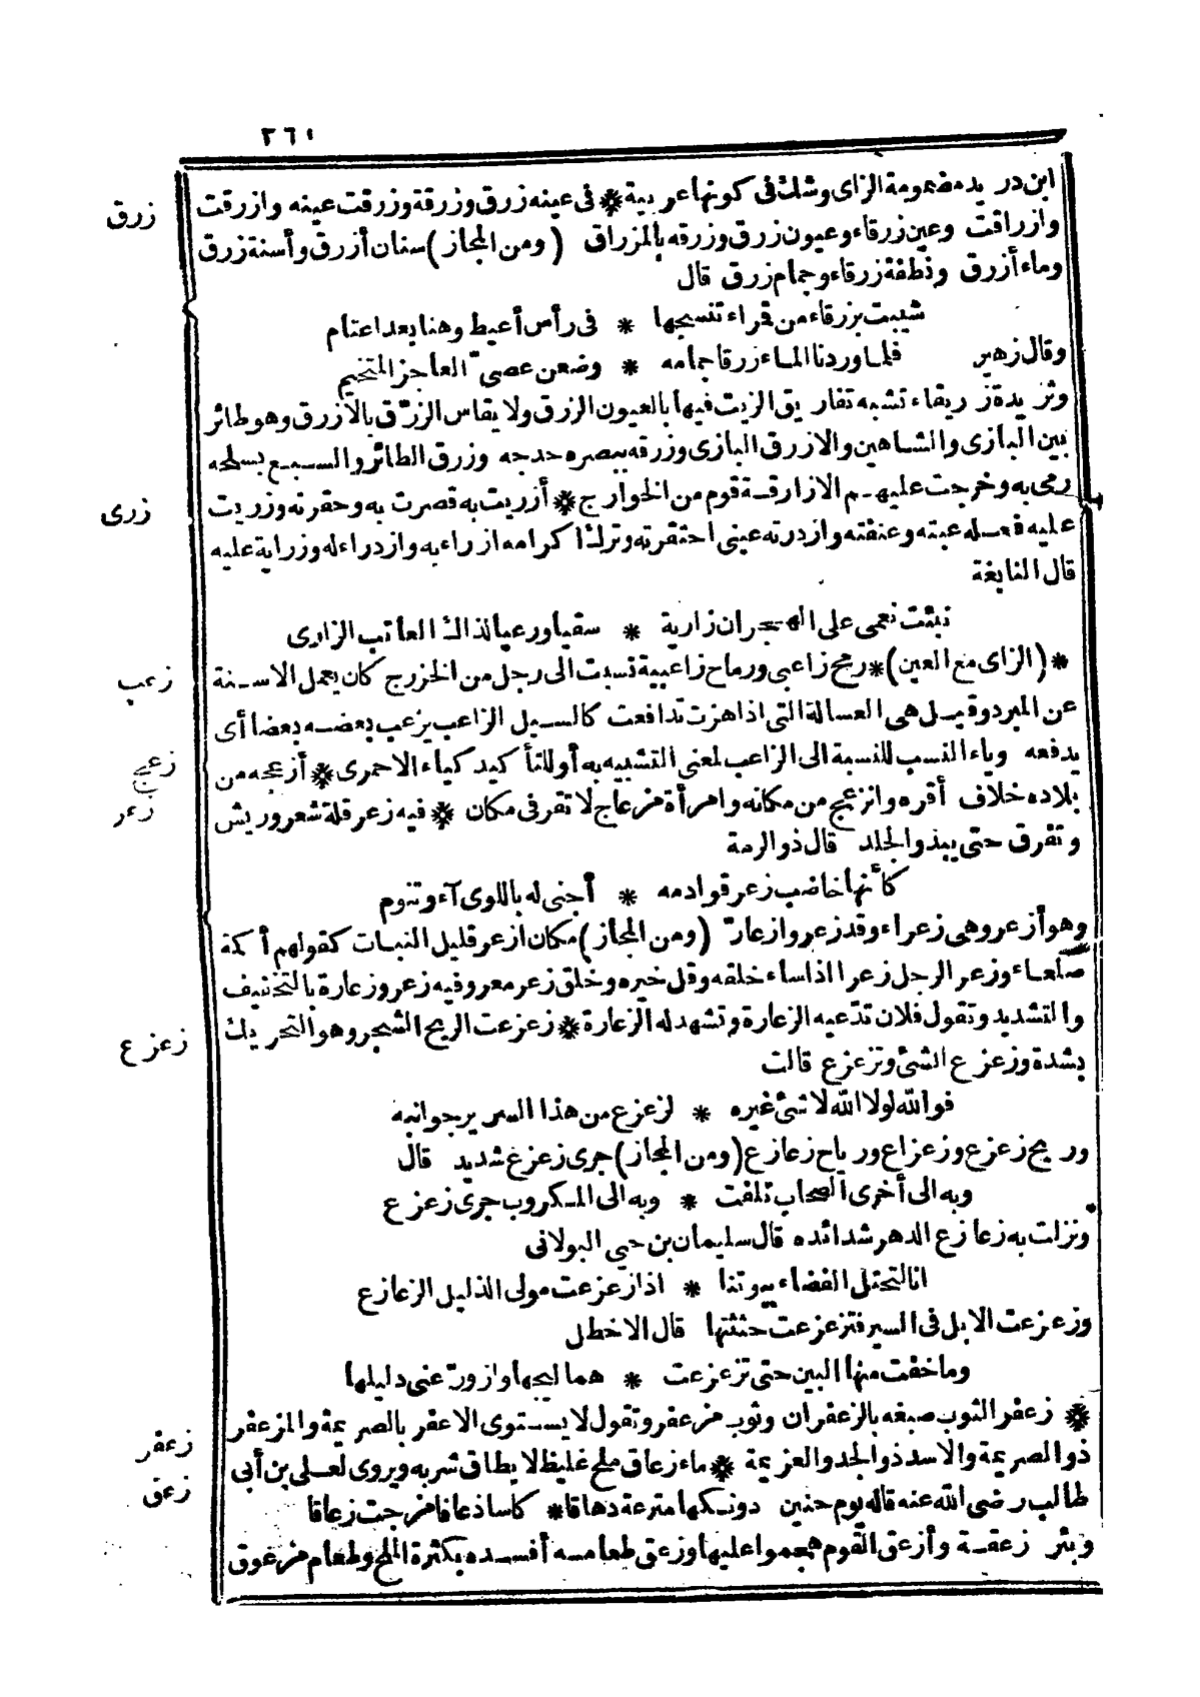 ٢٦١
ابن دريد مضمومة الزاى وشك فى كونها عربية * فى عينه زرق وزرقة وزرقت عينه وازرقت
زرق
وازراقت وعين زرقاء وعيون زرق وزرقه بالمزراق (ومن المجاز) سنان أزرق وأسنة زرق
وماء أزرق ونطفة زرقاء وجمام زرق قال
شيبت بزرقاء من قمراء تنسجها * فى رأس أعيط وهنا بعد اعتام
وقال زهير فلما وردنا الماء زرقا جمامه * وضعن عصىّ العاجز المتخيم
وثريدة زريقاء تشبه تفاريق الزيت فيها بالعيون الزرق ولا يقاس الزرّق بالازرق وهو طائر
بين البازى والشاهين والازرق البازى وزرقه ببصره حدجه وزرق الطائر والسبع بسلحه
رمى به وخرجت عليهم الازارقة قوم من الخوارج * أزريت به قصرت به وحقرته وزريت
زرى
عليه فعله عبته وعنفته وازدرته عينى احتقرته وترك اكرامه ازراء به وازدراء له وزراية عليه
قال النابغة
نبئت نعمى على الهجران زارية * سقيا ورعيا لذاك العاتب الزارى
* (الزاى مع العين) * رمح زاعبى ورماح زاعبية نسبت الى رجل من الخزرج كان يعمل الاسنة
زعب
عن المبرد وقيل هى العسالة التى اذا هزت تدافعت كالسيل الزاعب يزعب بعضه بعضا أى
يدفعه وياء النسب للنسبة الى الزاعب لمعنى التشبيه به أو للتأكيد كياء الاحمرى * أزعجه من
زعج
بلاده خلاف أقره وانزعج من مكانه وامرأة مزعاج لا تقر فى مكان * فيه زعر قلة شعر وريش
زعر
وتفرق حتى يبدو الجلد قال ذو الرمة
كأنها خاضب زعر قوادمه * أجنى له باللوى آء وتنوم
وهو أزعر وهى زعراء وقد زعر وازعارّ (ومن المجاز) مكان ازعر قليل النبات كقولهم أكمة
صلعاء وزعر الرجل زعرا اذا ساء خلقه وقل خيره وخلق زعر معر وفيه زعر وزعارة بالتخفيف
والتشديد وتقول فلان تدّعيه الزعارة وتشهد له الزعارة * زعزعت الريح الشجر وهو التحريك
زعزع
بشدة وزعزع الشئ وتزعزع قالت
فوالله لولا الله لا شئ غيره * لزعزع من هذا السرير جوانبه
وريح زعزع وزعزاع ورياح زعازع (ومن المجاز) جرى زعزع شديد قال
وبه الى أخرى الصحاب تلفت * وبه الى المكروب جرى زعزع
ونزلت به زعازع الدهر شدائده قال سليمان بن حيى البولانى
انا لتحتل الفضاء بيوتنا * اذا زعزعت مولى الذليل الزعازع
وزعزعت الابل فى السير فتزعزعت حثثتها قال الاخطل
وما خفت منها البين حتى تزعزعت * هماليجها وازورّ عنى دليلها
* زعفر الثوب صبغه بالزعفران وثوب مزعفر وتقول لا يستوى الاعفر بالصريمة والمزعفر
زعفر
ذو الصريمة والاسد ذو الجد والعزيمة * ماء زعاق ملح غليظ لا يطاق شربه ويروى لعلى بن أبى
زعق
طالب رضى الله عنه قاله يوم حنين دونكها مترعة دهاقا * كاسا ذعافا مزجت زعاقا
وبئر زعقة وأزعق القوم هجموا عليها وزعق طعامه أفسده بكثرة الملح وطعام مزعوق